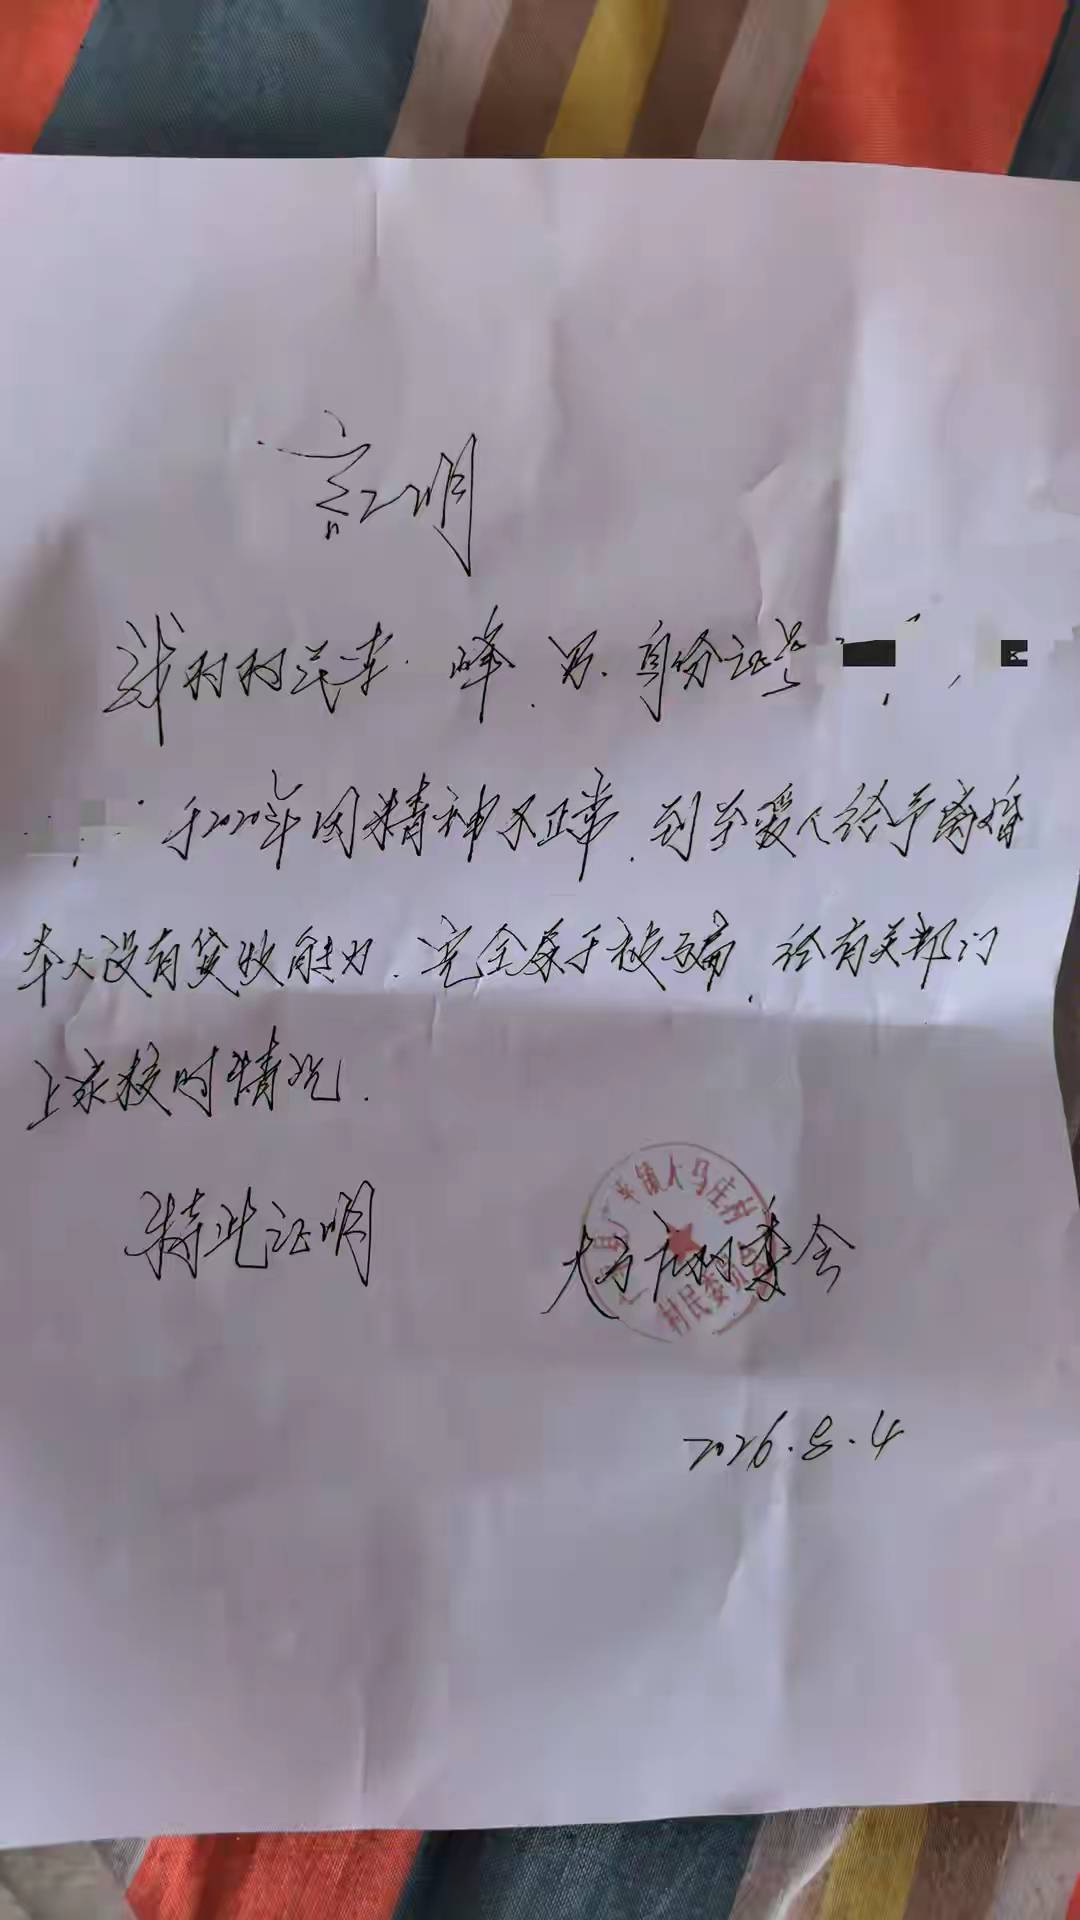 证明
我村村民李 峰.男.身份证号
于2020年因精神不正常.到至爱人给予离婚
本人没有贷款能力.完全属于被骗.给有关部门
上求核对情况.
特此证明
镇大马庄村
村民委员会
大马庄村委会
2026.8.4